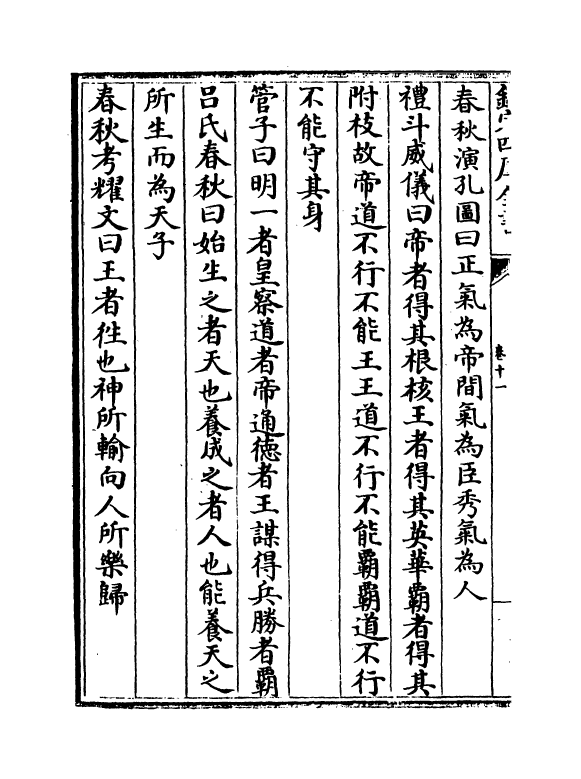 欽定四庫全書
卷十一
春秋演孔圖曰正氣為帝間氣為臣秀氣為人
禮斗威儀曰帝者得其根核王者得其英華霸者得其
附枝故帝道不行不能王王道不行不能霸霸道不行
不能守其身
管子曰明一者皇察道者帝通徳者王謀得兵勝者霸
吕氏春秋曰始生之者天也養成之者人也能養天之
所生而為天子
春秋考耀文曰王者徃也神所輸向人所樂歸